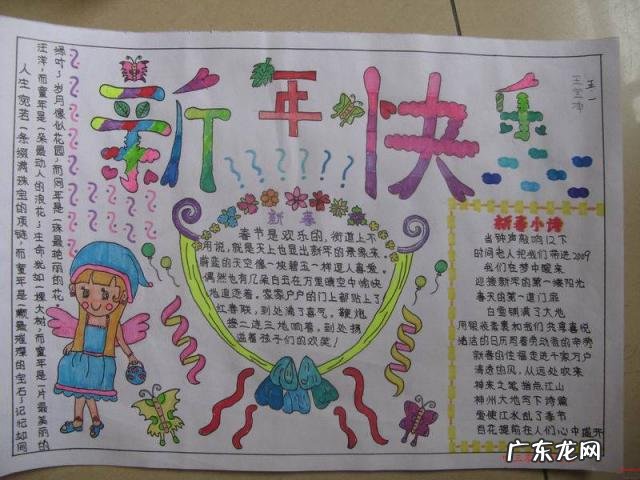 新年快乐
五一
人生宛若一条缀满珠宝的项链,而童年是一颗最璀璨的宝石;记忆如同
汪洋,而童年是一朵最动人的浪花;生命犹如一棵大树,而童年是一片最美丽的
绿叶;岁月像似花园,而童年是一珠最艳丽的花
新春
春节是欢乐的,街道上不
用说,就是天上也显出新年的景象来
蔚蓝的天空像一块碧玉一样逗人喜爱。
偶然也有几朵白云在万里晴空中愉快
地追逐着。家家户户的门上都贴上了
红春联,到处满了喜气。鞭炮
接二连三地响着,到处扬
溢着孩子们的欢笑!
新春小诗
当钟声敲响12下
时间老人把我们带进2009
我们在梦中醒来
迎接新年的第一缕阳光
春天的第一道门扉
白雪铺满了大地
用银装素裹和我们共享喜悦
诸活的日历写着劳动者的辛劳
新春的佳福走进千家万户
清逸的风,从远处吹来
神来之笔指点江山
神州大地写下诗篇
爱使江水乱了春节
百花提前在人们心中盛开
广东龙网